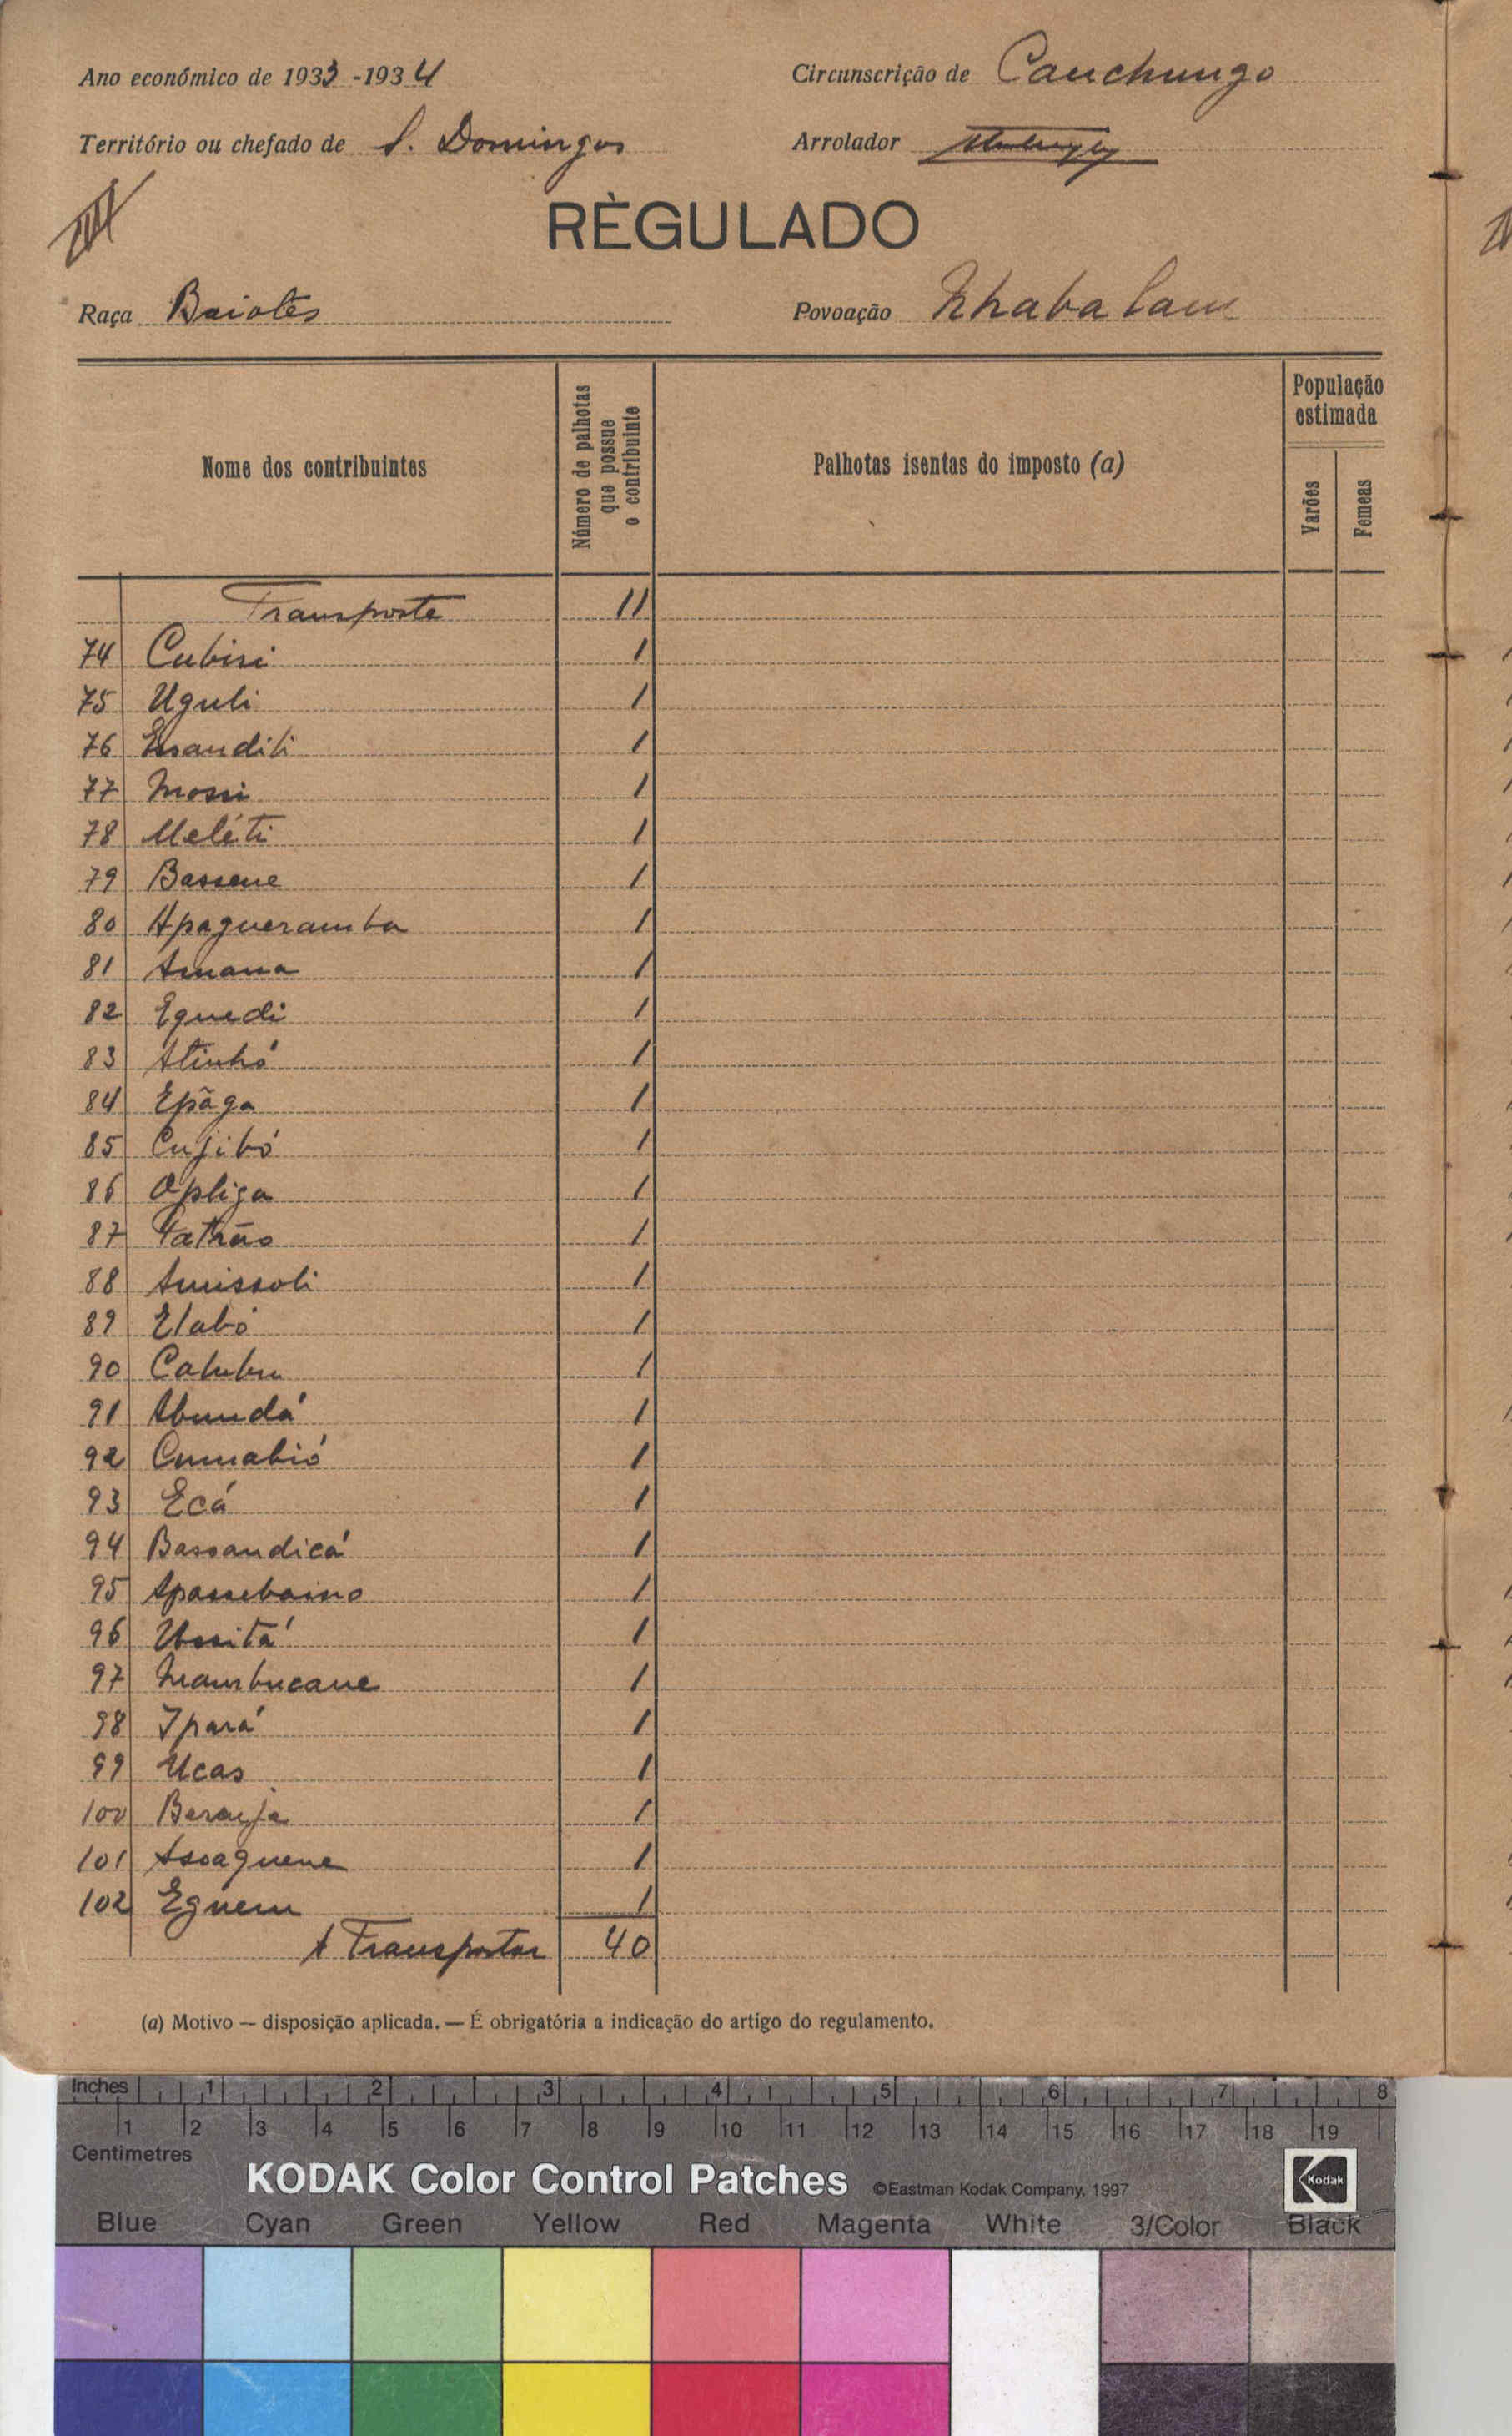 Ano económico de 1933-1934
Circunscrição de Canchungo
Território ou chefado de S. Domingos
Arrolador
RÈGULADO
Raça Baiotes
Povoação Nhabalam
Nome dos contribuintes
Número de palhotas que possue o contribuinte
Palhotas isentas do imposto (a)
População estimada
Varões
Femeas
Transporte 11
74 Cubiri 1
75 Uguli 1
76 Essanditi 1
77 Mossi 1
78 Meléti 1
79 Bassene 1
80 Apagueramba 1
81 Amana 1
82 Eguedi 1
83 Atinhó 1
84 Epãga 1
85 Cujibó 1
86 Opliga 1
87 1
88 Amissoli 1
89 Elabó 1
90 1
91 Abundá 1
92 Cumabió 1
93 Ecá 1
94 Bassandicá 1
95 Apassebaino 1
96 Ussitá 1
97 Mambucane 1
98 Ipará 1
99 Ucas 1
100 1
101 Assaguene 1
102 Eguem 1
A Transportar 40
(a) Motivo — disposição aplicada. — É obrigatória a indicação do artigo do regulamento.
Inches 1 2 3 4 5 6 7 8
1 2 3 4 5 6 7 8 9 10 11 12 13 14 15 16 17 18 19
Centimetres
KODAK Color Control Patches ©Eastman Kodak Company, 1997 Kodak
Blue Cyan Green Yellow Red Magenta White 3/Color Black